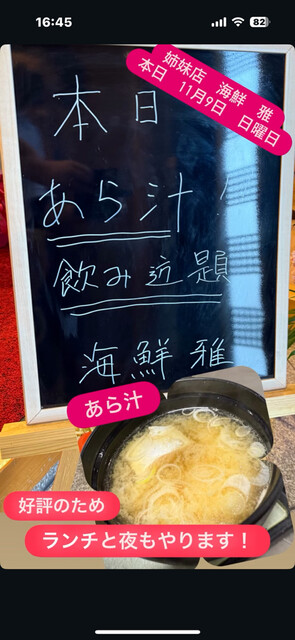 16:45
82
姉妹店 海鮮 雅
本日 11月9日 日曜日
本日
あら汁!
飲み近題
海鮮雅
あら汁
好評のため
ランチと夜もやります！